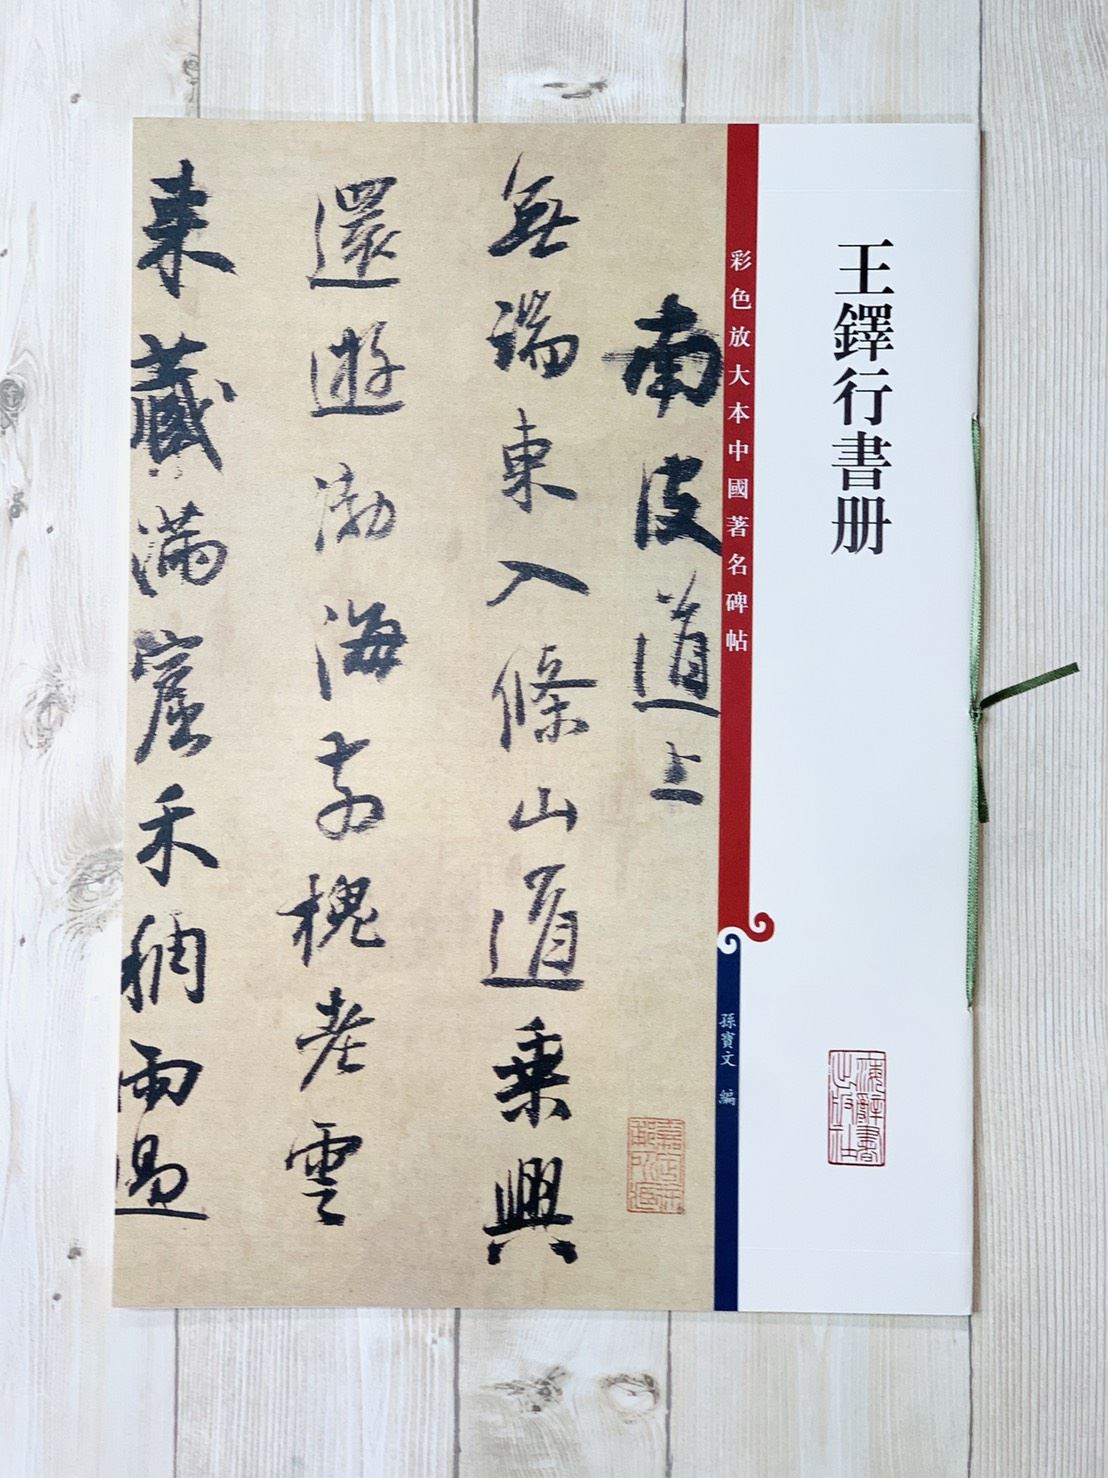 王鐸行書册
彩色放大本中國著名碑帖
孫寶文 編
海辭書出版社
南皮道上
無端東入條山道乗興
還遊渤海前槐老雲
来藏滿窟禾稠雨過